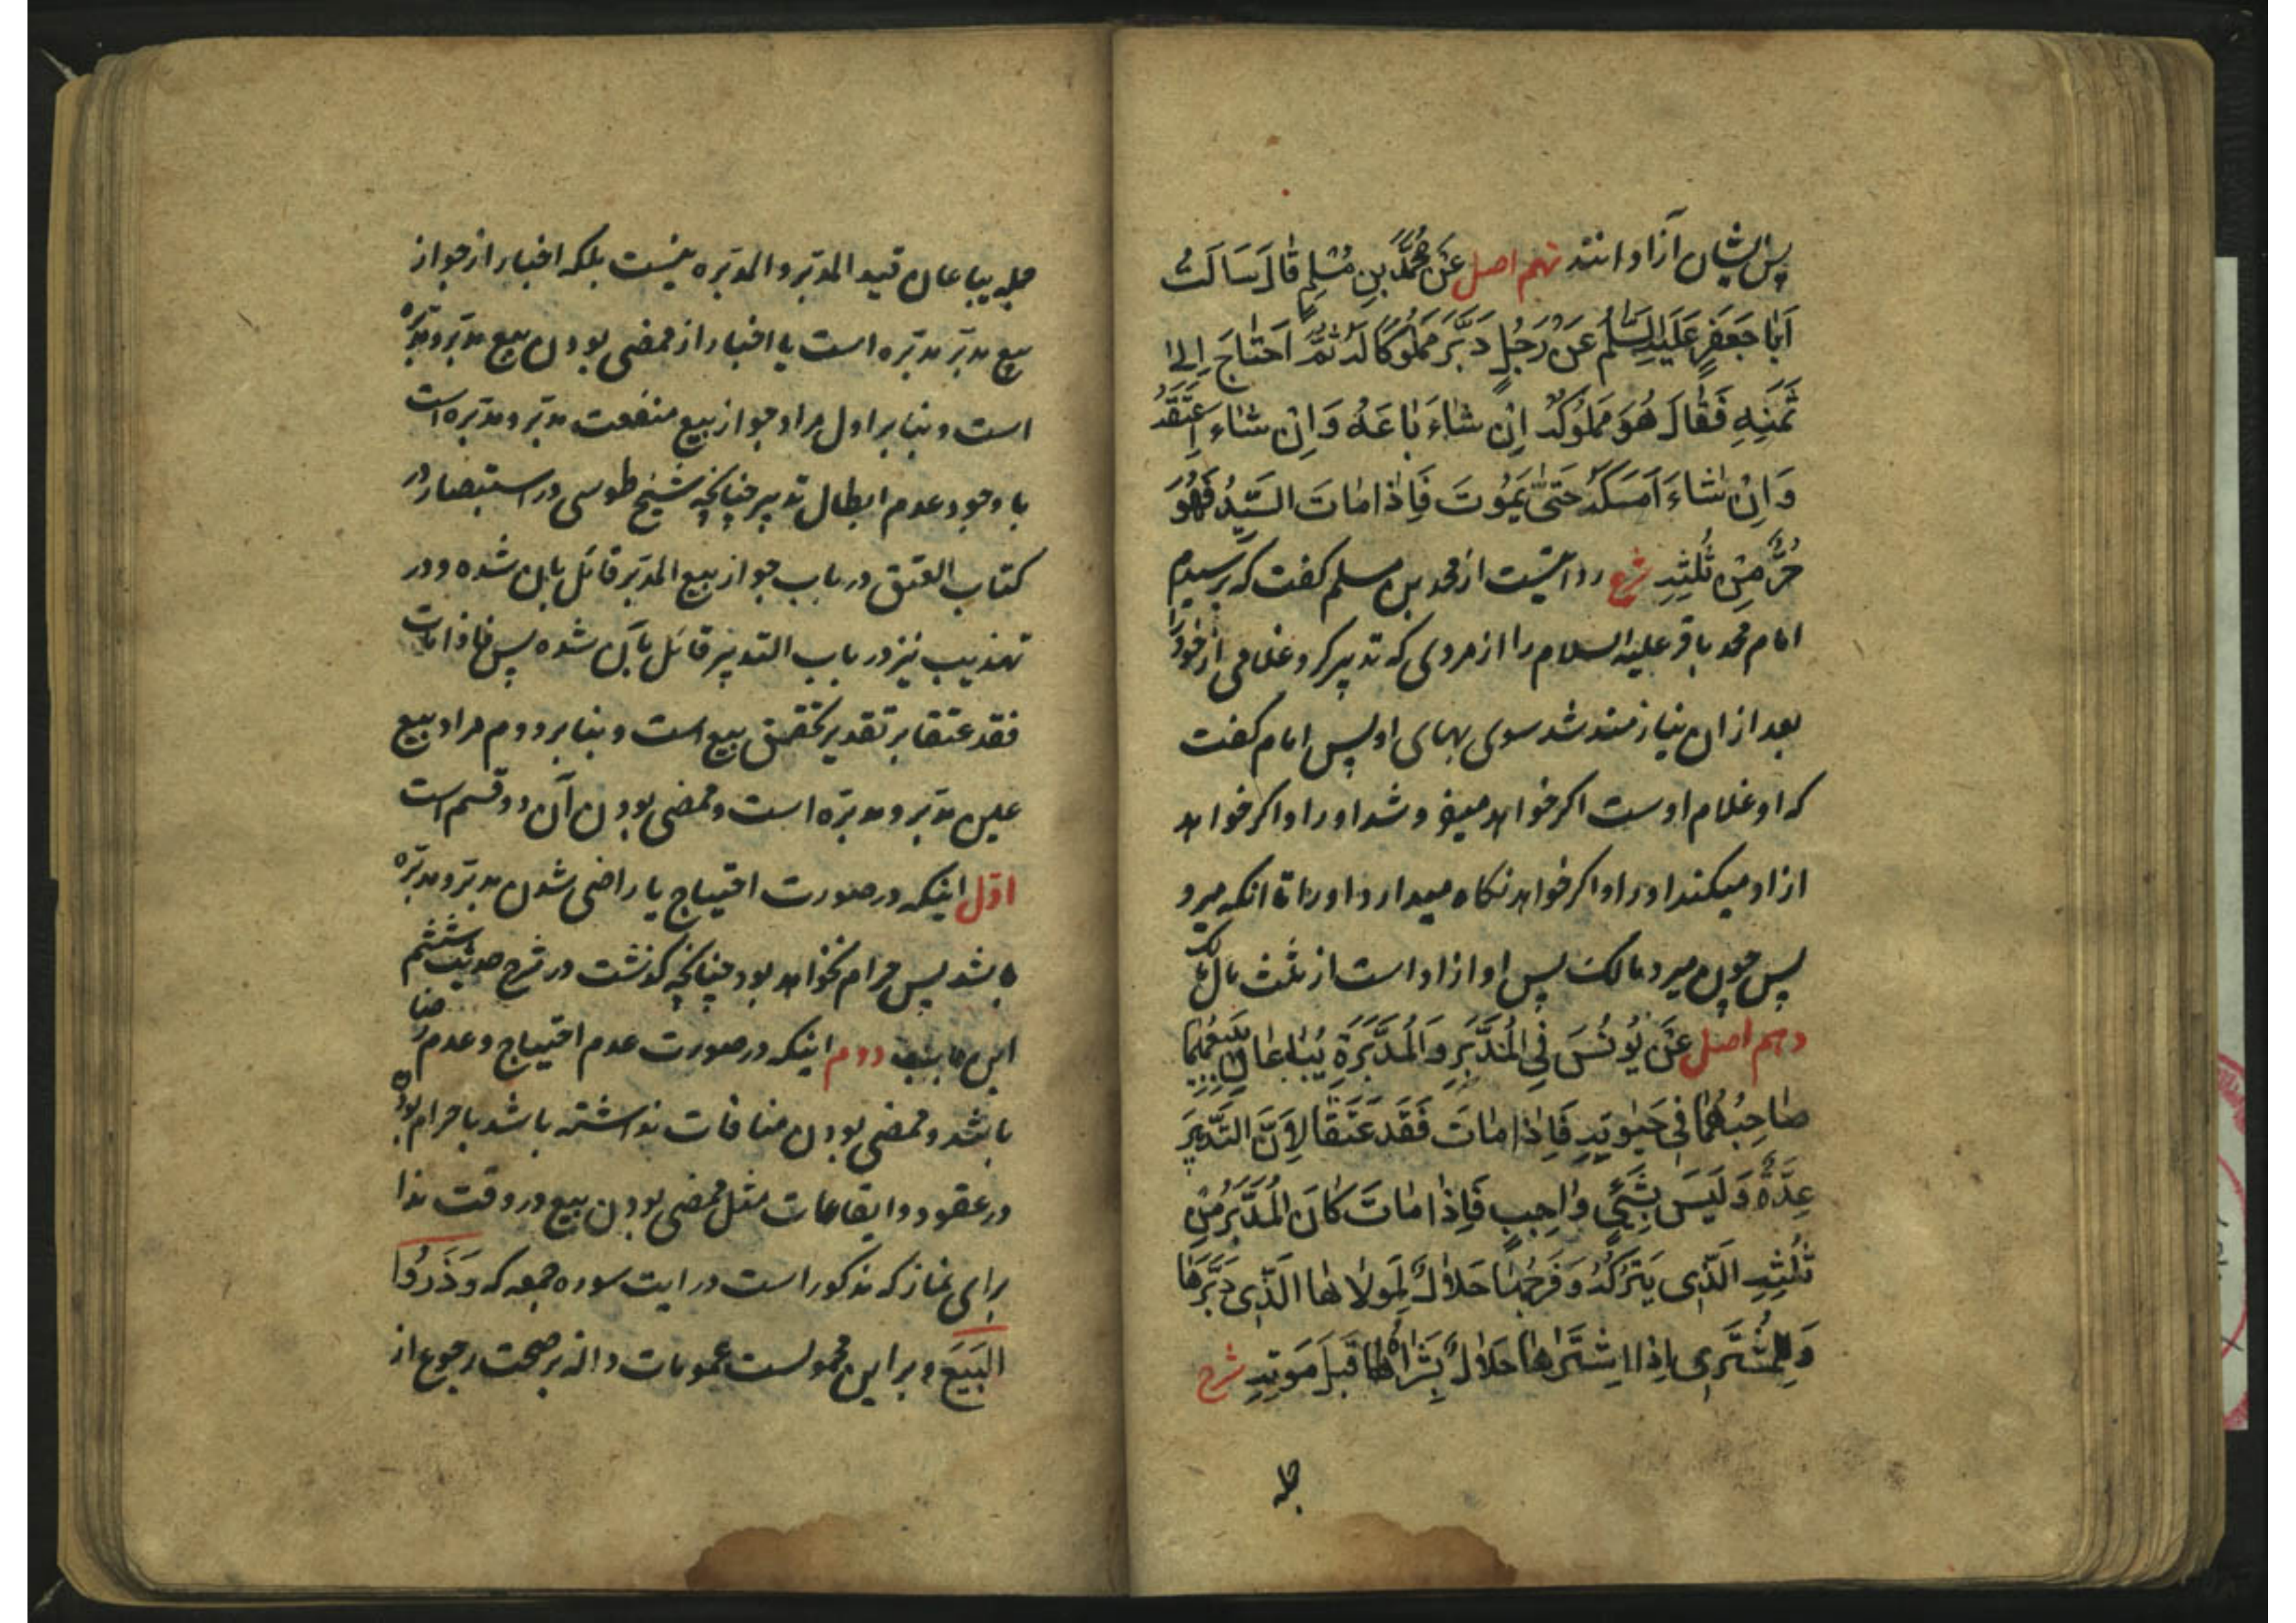 پس ایشان آزادانند نهم اصل عَنْ مُحَمَّدِ بْنِ مُسْلِمٍ قَالَ سَاَلْتُ
اَبَا جَعْفَرٍ عَلَیْهِ السَّلٰمُ عَنْ رَجُلٍ دَبَّرَ مَمْلُوکًا لَهُ ثُمَّ احْتَاجَ اِلیٰ
ثَمَنِهِ فَقَالَ هُوَ مَمْلُوکُهُ اِنْ شَاءَ بَاعَهُ وَاِنْ شَاءَ اَعْتَقَهُ
وَاِنْ شَاءَ اَمْسَکَهُ حَتّیٰ یَمُوتَ فَاِذَا مَاتَ السَّیِّدُ فَهُوَ
حُرٌّ مِنْ ثُلُثِهِ شرح روایتست از محمد بن مسلم کفت که پرسیدم
امام محمد باقر علیه السلام را از مردی که تدبیر کرد غلامی از خود را
بعد از ان نیازمند شد سوی بهای او پس امام کفت
که او غلام اوست اکر خواهد میفروشد او را و اکر خواهد
ازاد میکند او را و اکر خواهد نکاه میدارد او را تا انکه میرد
پس چون میرد مالک پس او ازاد است از ثلث مال مالک
دهم اصل عَنْ یُونُسَ فِی الْمُدَبَّرِ وَالْمُدَبَّرَةِ یُبَاعَانِ یَبِیعُهُمَا
صَاحِبُهُمَا فِی حَیٰوتِهِ فَاِذَا مَاتَ فَقَدْ عَتَقَا لِاَنَّ التَّدْبِیرَ
عِدَةٌ وَلَیْسَ بِشَیْءٍ وَاجِبٍ فَاِذَا مَاتَ کَانَ الْمُدَبَّرُ مِنْ
ثُلُثِهِ الَّذِی یَتْرُکُهُ وَفَرْجُهَا حَلَالٌ لِمَوْلَاهَا الَّذِی دَبَّرَهَا
وَلِلْمُشْتَرِی اِذَا اشْتَرَاهَا حَلَالٌ بِشَرَاهُ لهَا قَبْلَ مَوْتِهِ شرح
جمله
جمله یباعان قید المدبر و المدبره نیست بلکه اخبار از جواز
بیع مدبر مدبره است یا اخبار از ممضی بودن بیع مدبر و مدبره
است و بنا بر اول مراد جواز بیع منفعت مدبر و مدبره است
با وجود عدم ابطال تدبیر چنانچه شیخ طوسی در استبصار در
کتاب العتق در باب جواز بیع المدبر قائل بان شده و در
تهذیب نیز در باب التدبیر قائل بآن شده پس فاذا مات
فقد عتقا بر تقدیر تحقق بیع است و بنا بر دوم مراد بیع
عین مدبر و مدبره است و ممضی بودن آن دو قسم است
اوّل اینکه در صورت احتیاج یا راضی شدن مدبر و مدبره
باشد پس حرام نخواهد بود چنانچه کذشت در شرح حدیث ششم
این باب دوم اینکه در صورت عدم احتیاج و عدم رضا
باشد و ممضی بودن منافات نداشته باشد با حرام بودن
در عقود و ایقاعات مثل ممضی بودن بیع در وقت ندا
برای نماز که مذکور است در ایت سوره جمعه که وَذَرُوا
الْبَیْعَ و بر این محمولست عمومات داله بر صحت رجوع از